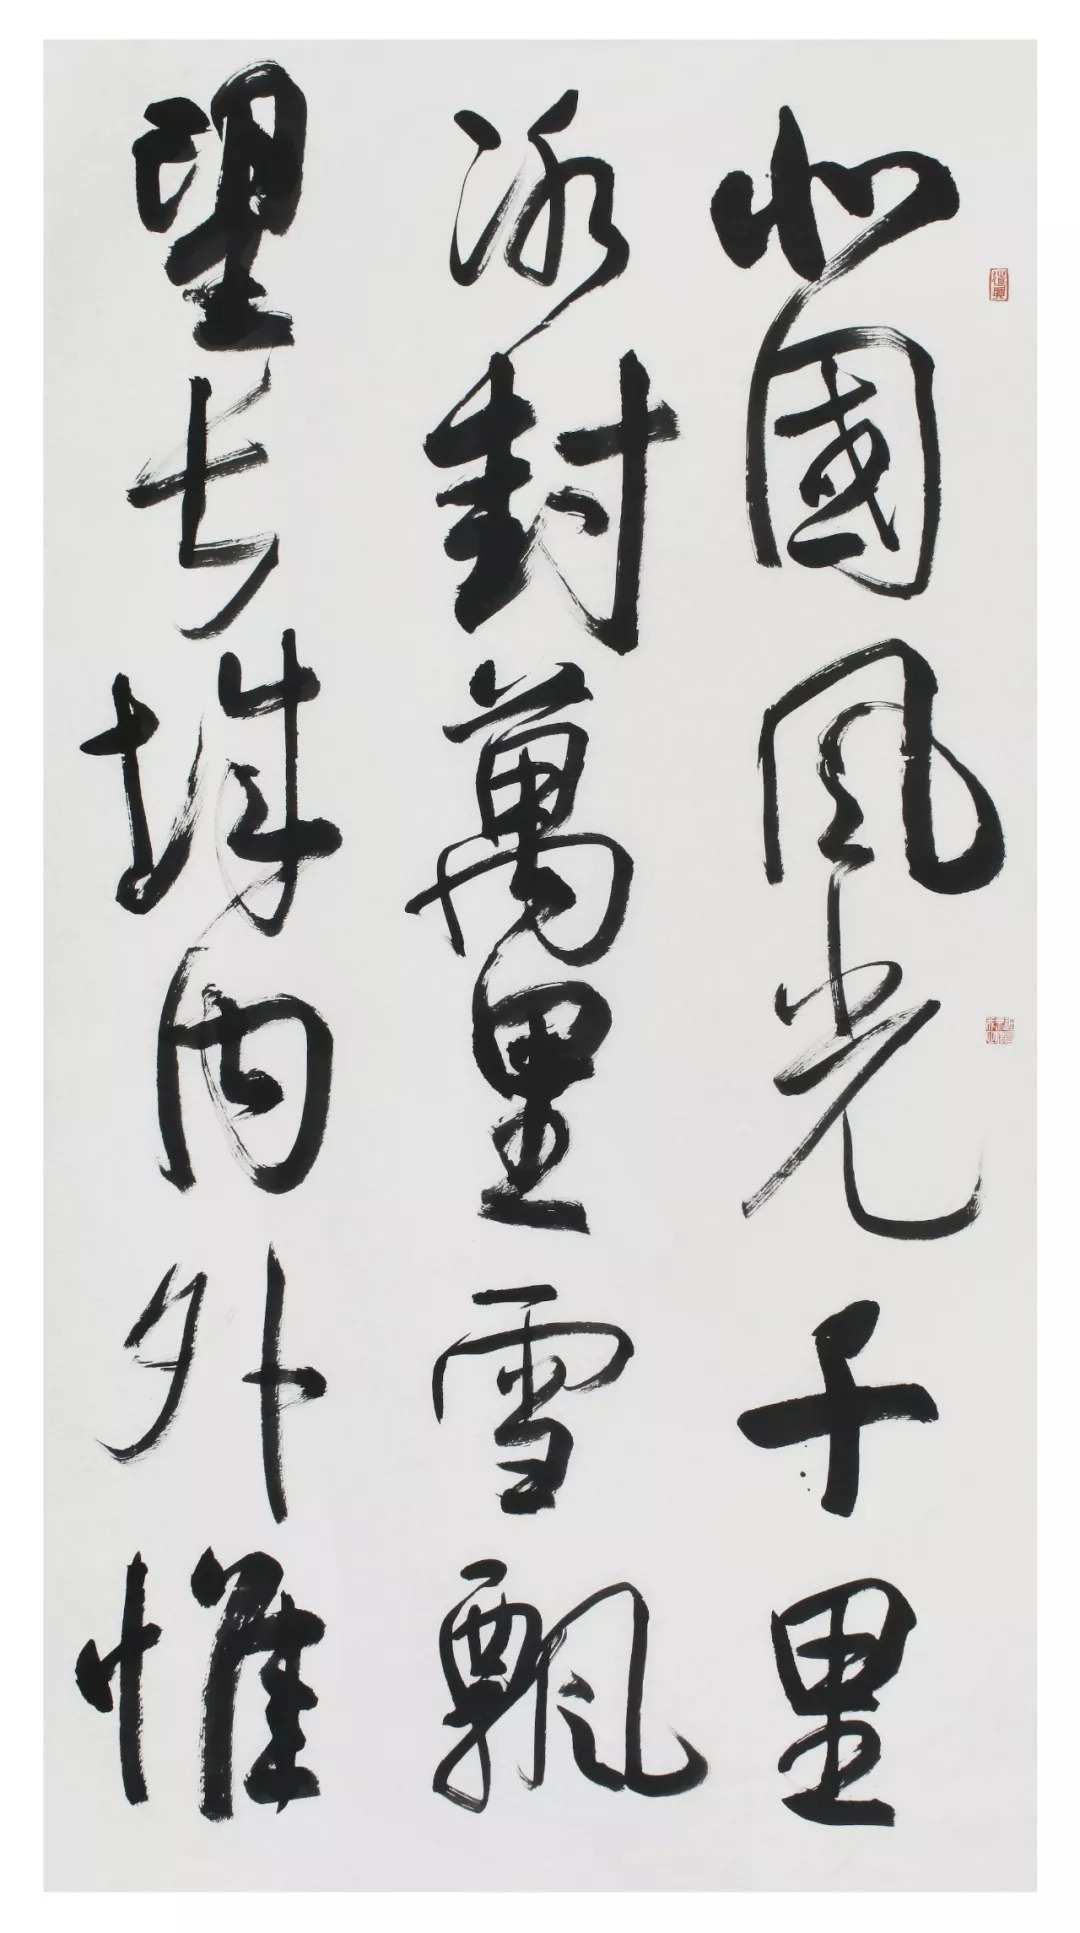 北國風光千里
冰封萬里雪飄
望長城内外惟